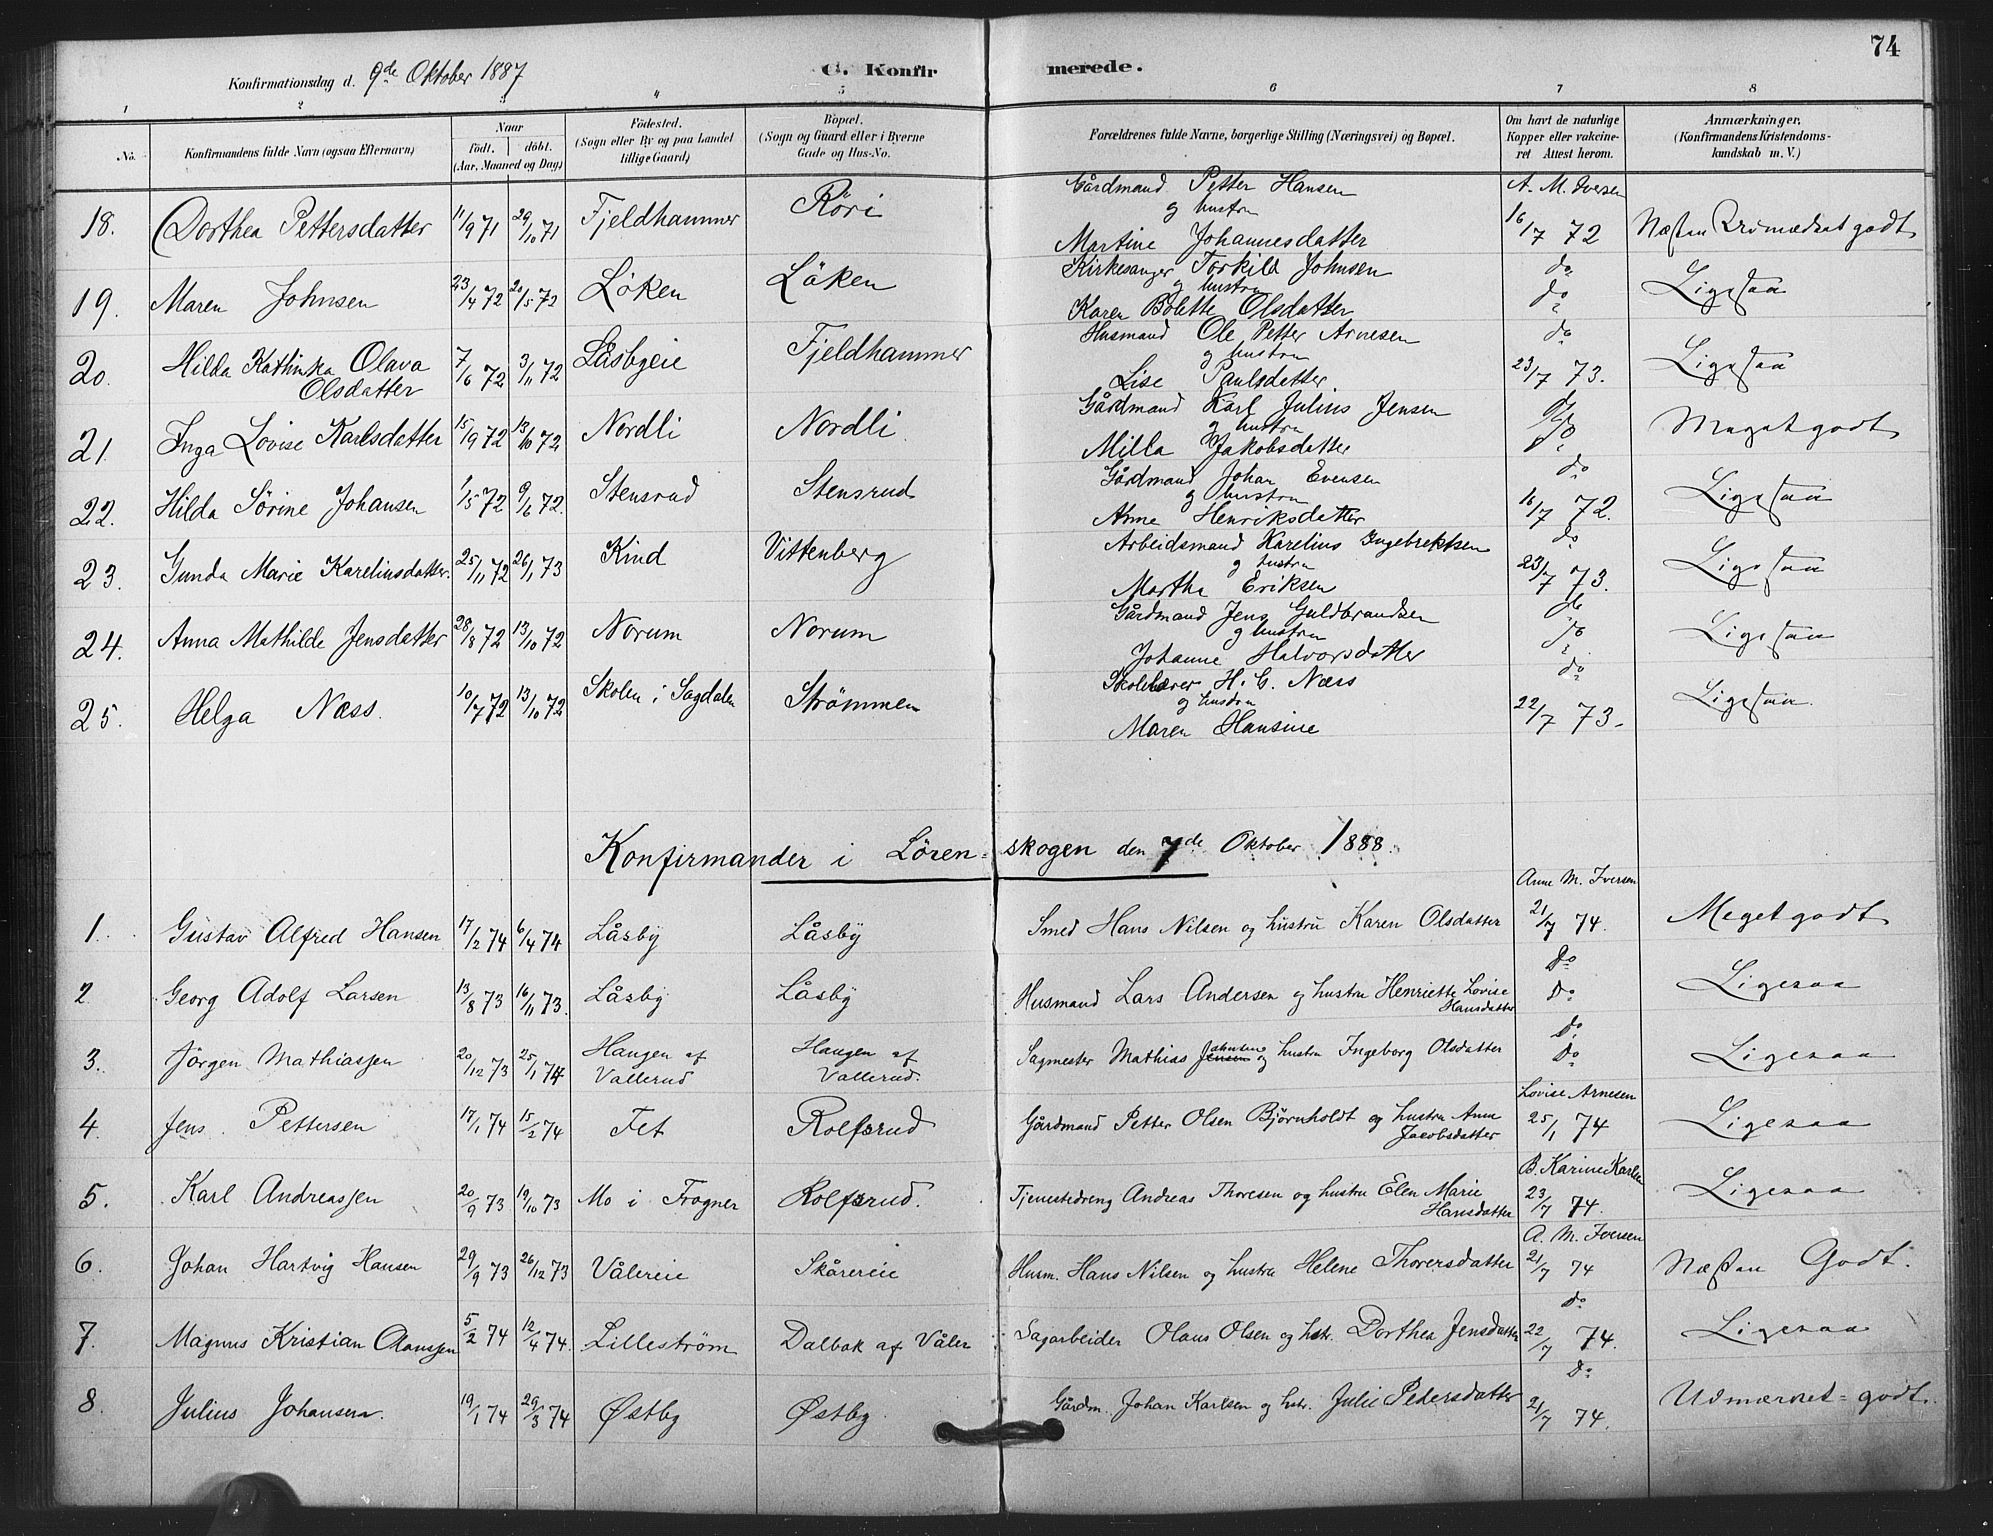 74
Konfirmationsdag d. 9de Oktober 1887 C. Konfirmerede.
1 2 3 4 5 6 7 8
No. Konfirmandens fulde Navn (ogsaa Efternavn) Naar født. døbt. (Aar, Maaned og Dag) Fødested. (Sogn eller By og paa Landet tillige Gaard) Bopæl. (Sogn og Gaard eller i Byerne Gade og Hus-No. Forældrenes fulde Navne, borgerlige Stilling (Næringsvei) og Bopæl. Om havt de naturlige Kopper eller vakcineret Attest herom. Anmærkninger. (Konfirmandens Kristendomskundskab m. V.)
18. Dorthea Pettersdatter 11/9 71 29/10 71 Fjeldhammer Röri Gårdmand Petter Hansen og hustru Martine Johannesdatter A. M. Iversen 16/7 72 Næsten godt
19. Maren Johnsen 23/4 72 20/5 72 Löken Löken Kirkesanger Torkild Johnsen og hustru Karen Bolette Olsdatter do do Ligesaa
20. Hilda Kathinka Olava Olsdatter 7/6 72 3/11 72 Låsbyeie Fjeldhammer Husmand Ole Petter Arnesen og hustru Lise Paulsdatter do 23/7 73. Ligesaa
21. Inga Lovise Karlsdatter 15/9 72 13/10 72 Nordli Nordli Gårdmand Karl Julius Jensen og hustru Milla Jakobsdatter do do Meget godt
22. Hilda Sörine Johansen 1/5 72 9/6 72. Stensrud Stensrud Gårdmand Johan Evensen og hustru Anne Henriksdatter do 16/7 72. Ligesaa
23. Gunda Marie Kareliusdatter. 25/11 72 26/1 73 Kind Vittenberg Arbeidsmand Karelius Ingebrektsen og hustru Martha Eriksen do 23/7 73. Ligesaa
24. Anna Mathilde Jensdatter 28/8 72 13/10 72 Norum Norum Gårdmand Jens Guldbrandsen og hustru Johanne Halvorsdatter do do Ligesaa
25. Helga Næss. 10/7 72 13/10 72 Skolen i Sagdalen Strømmen Skolelærer H. C. Næss og hustru Maren Hansine do 22/7 73. Ligesaa.
Konfirmander i Lörenskogen den 7de Oktober 1888.
1. Gustav Alfred Hansen 17/2 74 6/4 74 Låsby Låsby Smed Hans Nilsen og hustru Karen Olsdatter Anne M. Iversen 21/7 74. Meget godt
2 Georg Adolf Larsen 13/8 73 16/11 73. Låsby Låsby Husmand Lars Andersen og hustru Henriette Lovise Hansdatter Do Do Ligesaa
3. Jörgen Mathiassen 20/12 73 25/1 74 Haugen af Vallerud Haugen af Vallerud. Sagmester Mathias Jensen og hustru Ingeborg Olsdatter Do Do Ligesaa
4. Jens Pettersen 17/1 74 15/2 74 Fet Rolfsrud Gårdmand Petter Olsen Bjørnholdt og hustru Anne Jacobsdatter Lovise Arnesen 25/1 74 Ligesaa
5. Karl Andreassen 20/9 73 19/10 73 Mo i Frogner Rolfsrud. Tjenestedreng Andreas Thoresen og hustru Elen Marie Hansdatter B. Karine Karlsen 23/7 74. Ligesaa
6. Johan Hartvig Hansen 29/9 73 26/12 73 Vålereie Skårereie Husm. Hans Nilsen og hustru Helene Thorersdatter A. M. Iversen 21/7 74 Næsten Godt.
7. Magnus Kristian Olaussen 5/2 74 12/4 74. Lilleström Dalbak af Våler Sagarbeider Olaus Olsen og hstr. Dorthea Jensdatter Do 22/7 74. Ligesaa
8. Julius Johansen. 19/1 74 29/3 74 Østby Østby. Gårdm. Johan Karlsen og hstr. Julie Pedersdatter Do 21/7 74. Udmærket-godt.